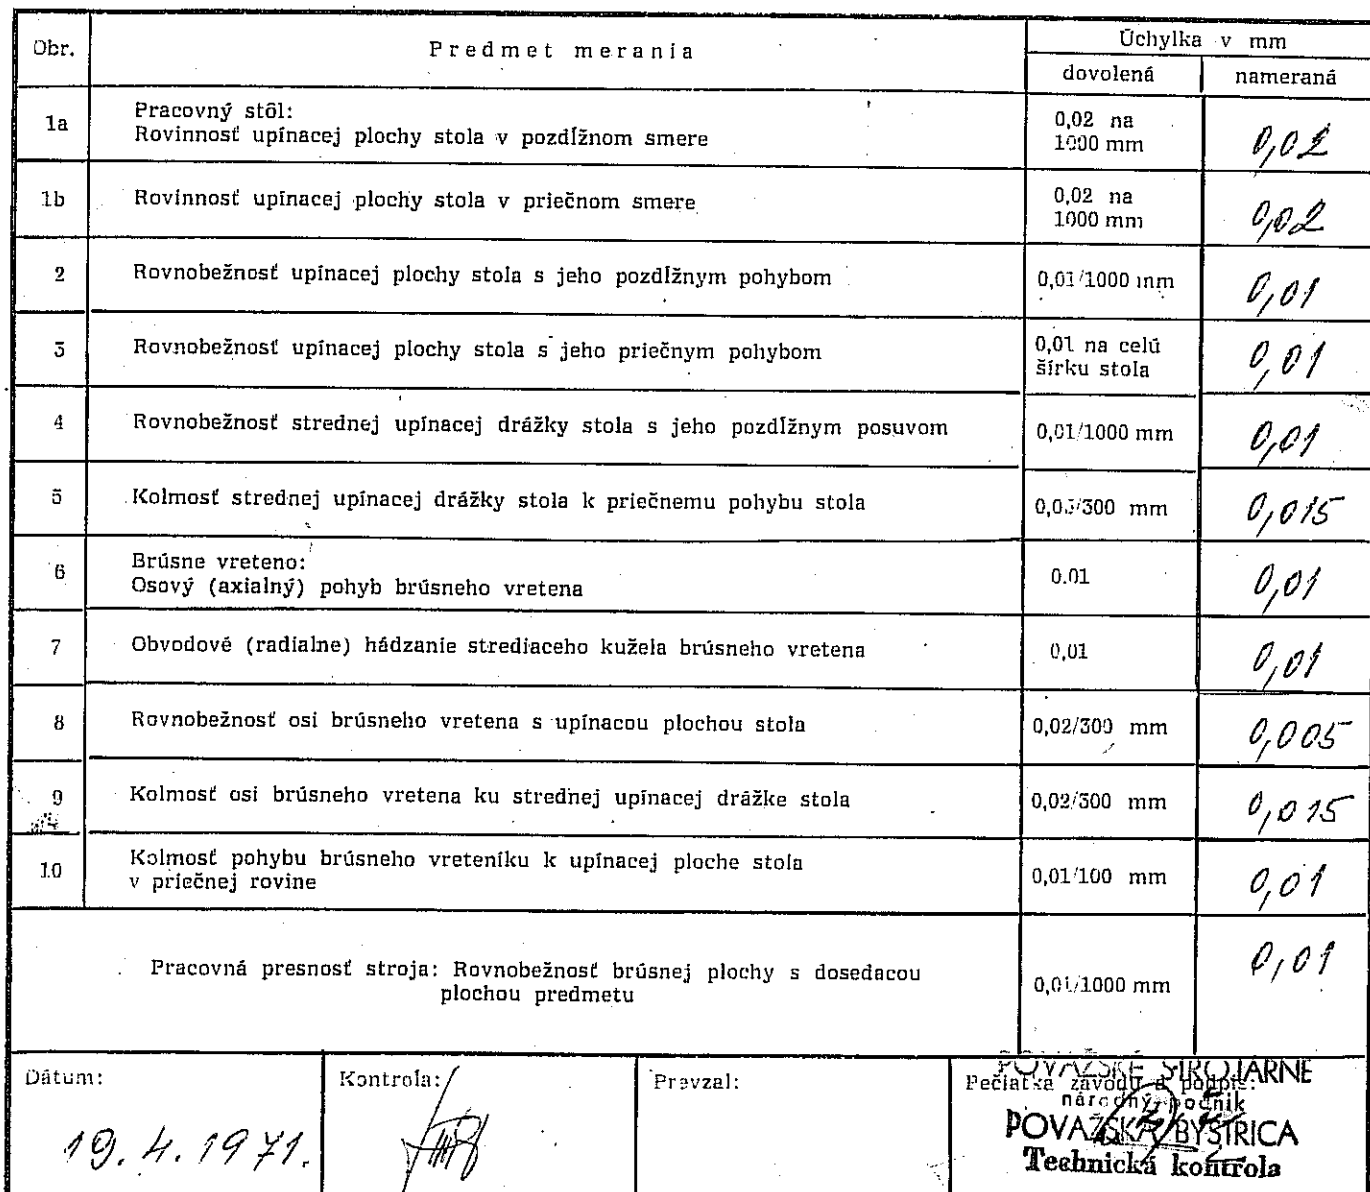 Obr. Predmet merania Úchylka v mm
dovolená nameraná
1a Pracovný stôl:
Rovinnosť upínacej plochy stola v pozdĺžnom smere 0,02 na
1000 mm 0,02
1b Rovinnosť upínacej plochy stola v priečnom smere 0,02 na
1000 mm 0,02
2 Rovnobežnosť upínacej plochy stola s jeho pozdĺžnym pohybom 0,01/1000 mm 0,01
3 Rovnobežnosť upínacej plochy stola s jeho priečnym pohybom 0,01 na celú
šírku stola 0,01
4 Rovnobežnosť strednej upínacej drážky stola s jeho pozdĺžnym posuvom 0,01/1000 mm 0,01
5 Kolmosť strednej upínacej drážky stola k priečnemu pohybu stola /300 mm 0,015
6 Brúsne vreteno:
Osový (axialný) pohyb brúsneho vretena 0.01 0,01
7 Obvodové (radialne) hádzanie strediaceho kužela brúsneho vretena 0,01 0,01
8 Rovnobežnosť osi brúsneho vretena s upínacou plochou stola 0,02/300 mm 0,005
9 Kolmosť osi brúsneho vretena ku strednej upínacej drážke stola 0,02/300 mm 0,015
10 Kolmosť pohybu brúsneho vreteníku k upínacej ploche stola
v priečnej rovine 0,01/100 mm 0,01
Pracovná presnosť stroja: Rovnobežnosť brúsnej plochy s dosedacou
plochou predmetu 0,01/1000 mm 0,01
Dátum: Kontrola: Prevzal: Pečiatka závodu a podpis:
19. 4. 1971.
POVAŽSKÉ STROJÁRNE
národný podnik
POVAŽSKÁ BYSTRICA
Technická kontrola